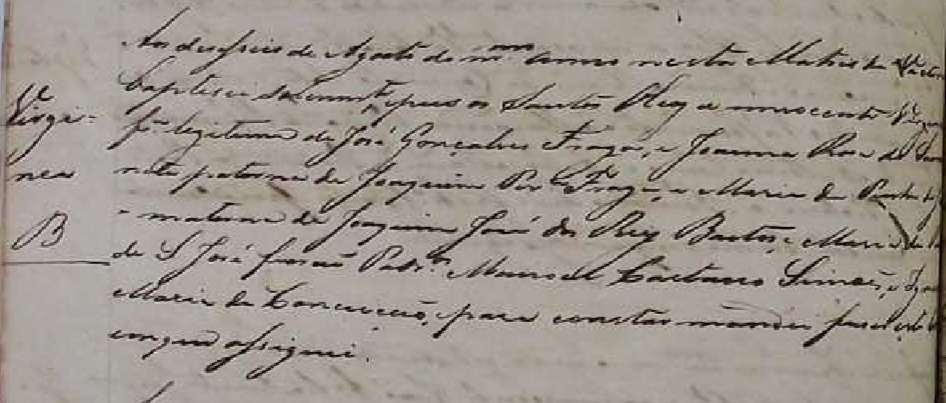 Virgi-
nea
B
Aos desaseis de Agosto de m.mo anno nesta Matris de
baptisei solemnte, e pus os Santos Oleos a innocente
fa. legitima de José Gonçalves Fraga, e Joanna Rosa de
neta paterna de Joaquim Per.a Fraga, e Maria da
- materna de Joaquim José dos Reys Bastos, e Maria
de S José forão Padr.os Manoel Caetano Simões, e
Maria da Conceicão, e para constar mandei faser
em que assignei.